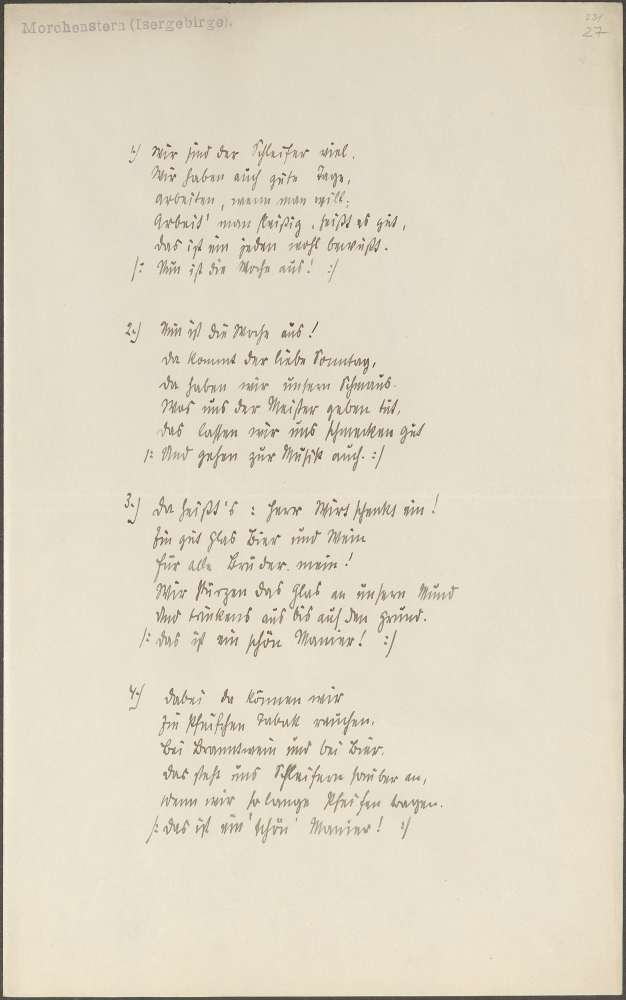 Morchenstern (Isergebirge).
231
27
1.) Wir sind der Schleifer viel.
Wir haben auch gute Tage,
arbeiten, wenn man will;
Arbeit' man fleißig, heißt es gut,
das ist ein jeden wohl bewußt.
/: Nun ist die Woche aus! :/
2.) Nun ist die Woche aus!
da kommt der liebe Sonntag,
da haben wir unsern Schmaus.
Was uns der Meister geben tut,
das lassen wir uns schmecken gut
/: Und gehen zur Musik auch. :/
3.) Da heißt's: Herr Wirt schenkt ein!
Ein gut Glas Bier und Wein
für alle Brüder mein!
Wir stürzen das Glas an unsern Mund
Und trinkens aus bis auf den Grund.
/: das ist ein schön Manier! :/
4.) dabei da können wir
Ein Pfeifchen Tabak rauchen.
Bei Branntwein und bei Bier.
das steht uns Schleifern sauber an,
wenn wir so lange Pfeifen tragen.
/: das ist ein schön' Manier! :/